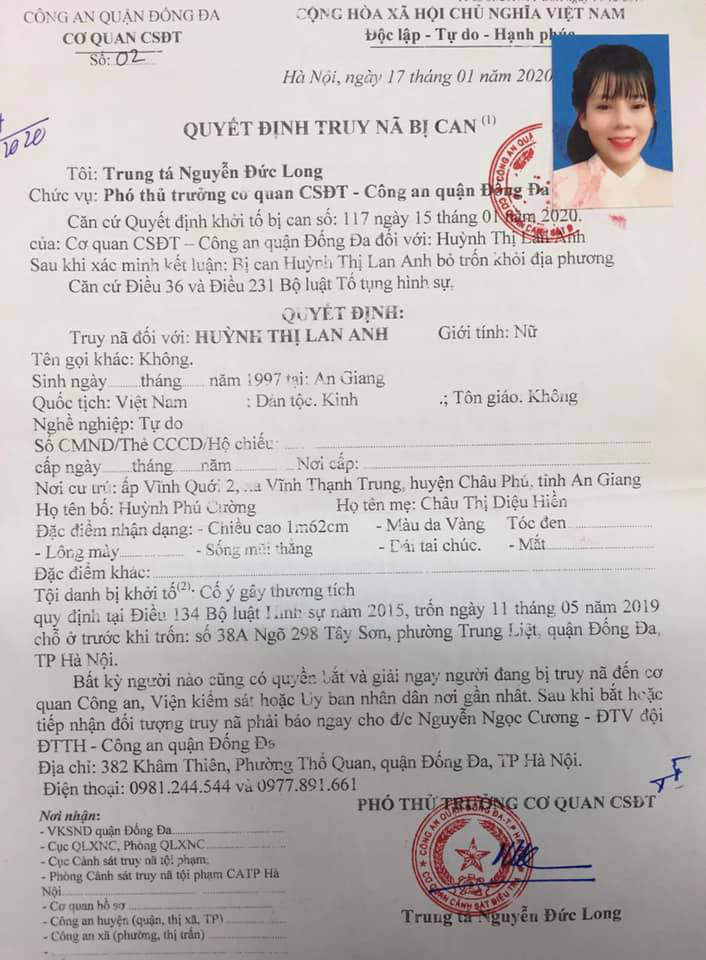 CÔNG AN QUẬN ĐỐNG ĐA
CỘNG HÒA XÃ HỘI CHỦ NGHĨA VIỆT NAM
CƠ QUAN CSĐT
Độc lập - Tự do - Hạnh phúc
Số: 02
Hà Nội, ngày 17 tháng 01 năm 2020
2020
QUYẾT ĐỊNH TRUY NÃ BỊ CAN (1)
Tôi: Trung tá Nguyễn Đức Long
Chức vụ: Phó thủ trưởng cơ quan CSĐT - Công an quận Đống Đa
Căn cứ Quyết định khởi tố bị can số: 117 ngày 15 tháng 01 năm 2020.
của: Cơ quan CSĐT – Công an quận Đống Đa đối với: Huỳnh Thị Lan Anh
Sau khi xác minh kết luận: Bị can Huỳnh Thị Lan Anh bỏ trốn khỏi địa phương
Căn cứ Điều 36 và Điều 231 Bộ luật Tố tụng hình sự,
QUYẾT ĐỊNH:
Truy nã đối với: HUỲNH THỊ LAN ANH Giới tính: Nữ
Tên gọi khác: Không.
Sinh ngày......tháng...... năm 1997 tại: An Giang
Quốc tịch: Việt Nam ; Dân tộc. Kinh .; Tôn giáo. Không
Nghề nghiệp: Tự do
Số CMND/Thẻ CCCD/Hộ chiếu:
cấp ngày......tháng......năm............Nơi cấp:
Nơi cư trú: ấp Vĩnh Quới 2, xa Vĩnh Thạnh Trung, huyện Châu Phú, tỉnh An Giang
Họ tên bố: Huỳnh Phú Cường Họ tên mẹ: Châu Thị Diệu Hiền
Đặc điểm nhận dạng: - Chiều cao 1m62cm - Màu da Vàng Tóc đen
- Lông mày............ - Sống mũi thẳng - Dái tai chúc. - Mắt
Đặc điểm khác:
Tội danh bị khởi tố(2). Cố ý gây thương tích
quy định tại Điều 134 Bộ luật Hình sự năm 2015, trốn ngày 11 tháng 05 năm 2019
chỗ ở trước khi trốn: số 38A Ngõ 298 Tây Sơn, phường Trung Liệt, quận Đống Đa,
TP Hà Nội.
Bất kỳ người nào cũng có quyền bắt và giải ngay người đang bị truy nã đến cơ
quan Công an, Viện kiểm sát hoặc Ủy ban nhân dân nơi gần nhất. Sau khi bắt hoặc
tiếp nhận đối tượng truy nã phải báo ngay cho đ/c Nguyễn Ngọc Cương - ĐTV đội
ĐTTH - Công an quận Đống Đs
Địa chỉ: 382 Khâm Thiên, Phường Thổ Quan, quận Đống Đa, TP Hà Nội.
Điện thoại: 0981.244.544 và 0977.891.661
PHÓ THỦ TRƯỞNG CƠ QUAN CSĐT
Nơi nhận:
- VKSND quận Đống Đa
- Cục QLXNC, Phòng QLXNC
- Cục Cảnh sát truy nã tội phạm;
- Phòng Cảnh sát truy nã tội phạm CATP Hà
Nội
- Cơ quan hồ sơ
- Công an huyện (quận, thị xã, TP)
- Công an xã (phường, thị trấn)
Trung tá Nguyễn Đức Long